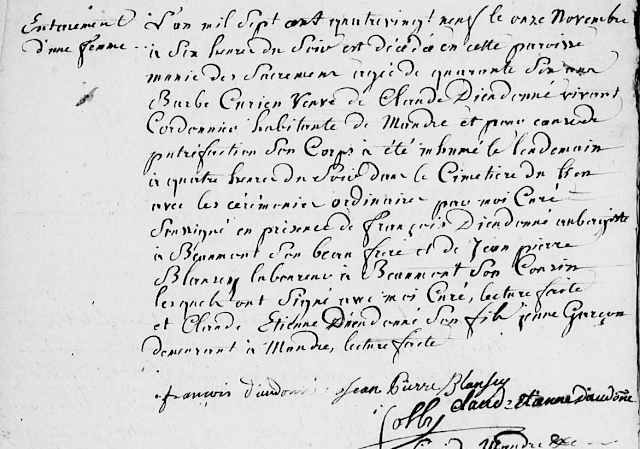 Enterrement
d'une femme
L'an mil sept cent quatre vingt neuf le onze Novembre
à six heures du Soir est décédée en cette paroisse
munie des Sacremens agée de quarante six ans
Barbe Curien Veuve de Claude Diendonné vivant
Cordonnier habitante de Mandre et pour cause de
putréfaction Son Corps a été inhumé le lendemain
à quatre heures du Soir dans le Cimetière du lieu
avec les cérémonies ordinaires par moi Curé
Soussigné en présence de françois Diendonné aubergiste
à Beaumont Son beau frere et de Jean pierre
Blansey laboureur à Beaumont Son Cousin
lesquels ont Signé avec moi Curé, lecture faite
et Claude Etienne Diendonné Son fils jeune Garçon
demeurant à Mandre, lecture faite
françois diaudonné Jean Pierre Blansey
Claude etianne Diaudonné
Colly